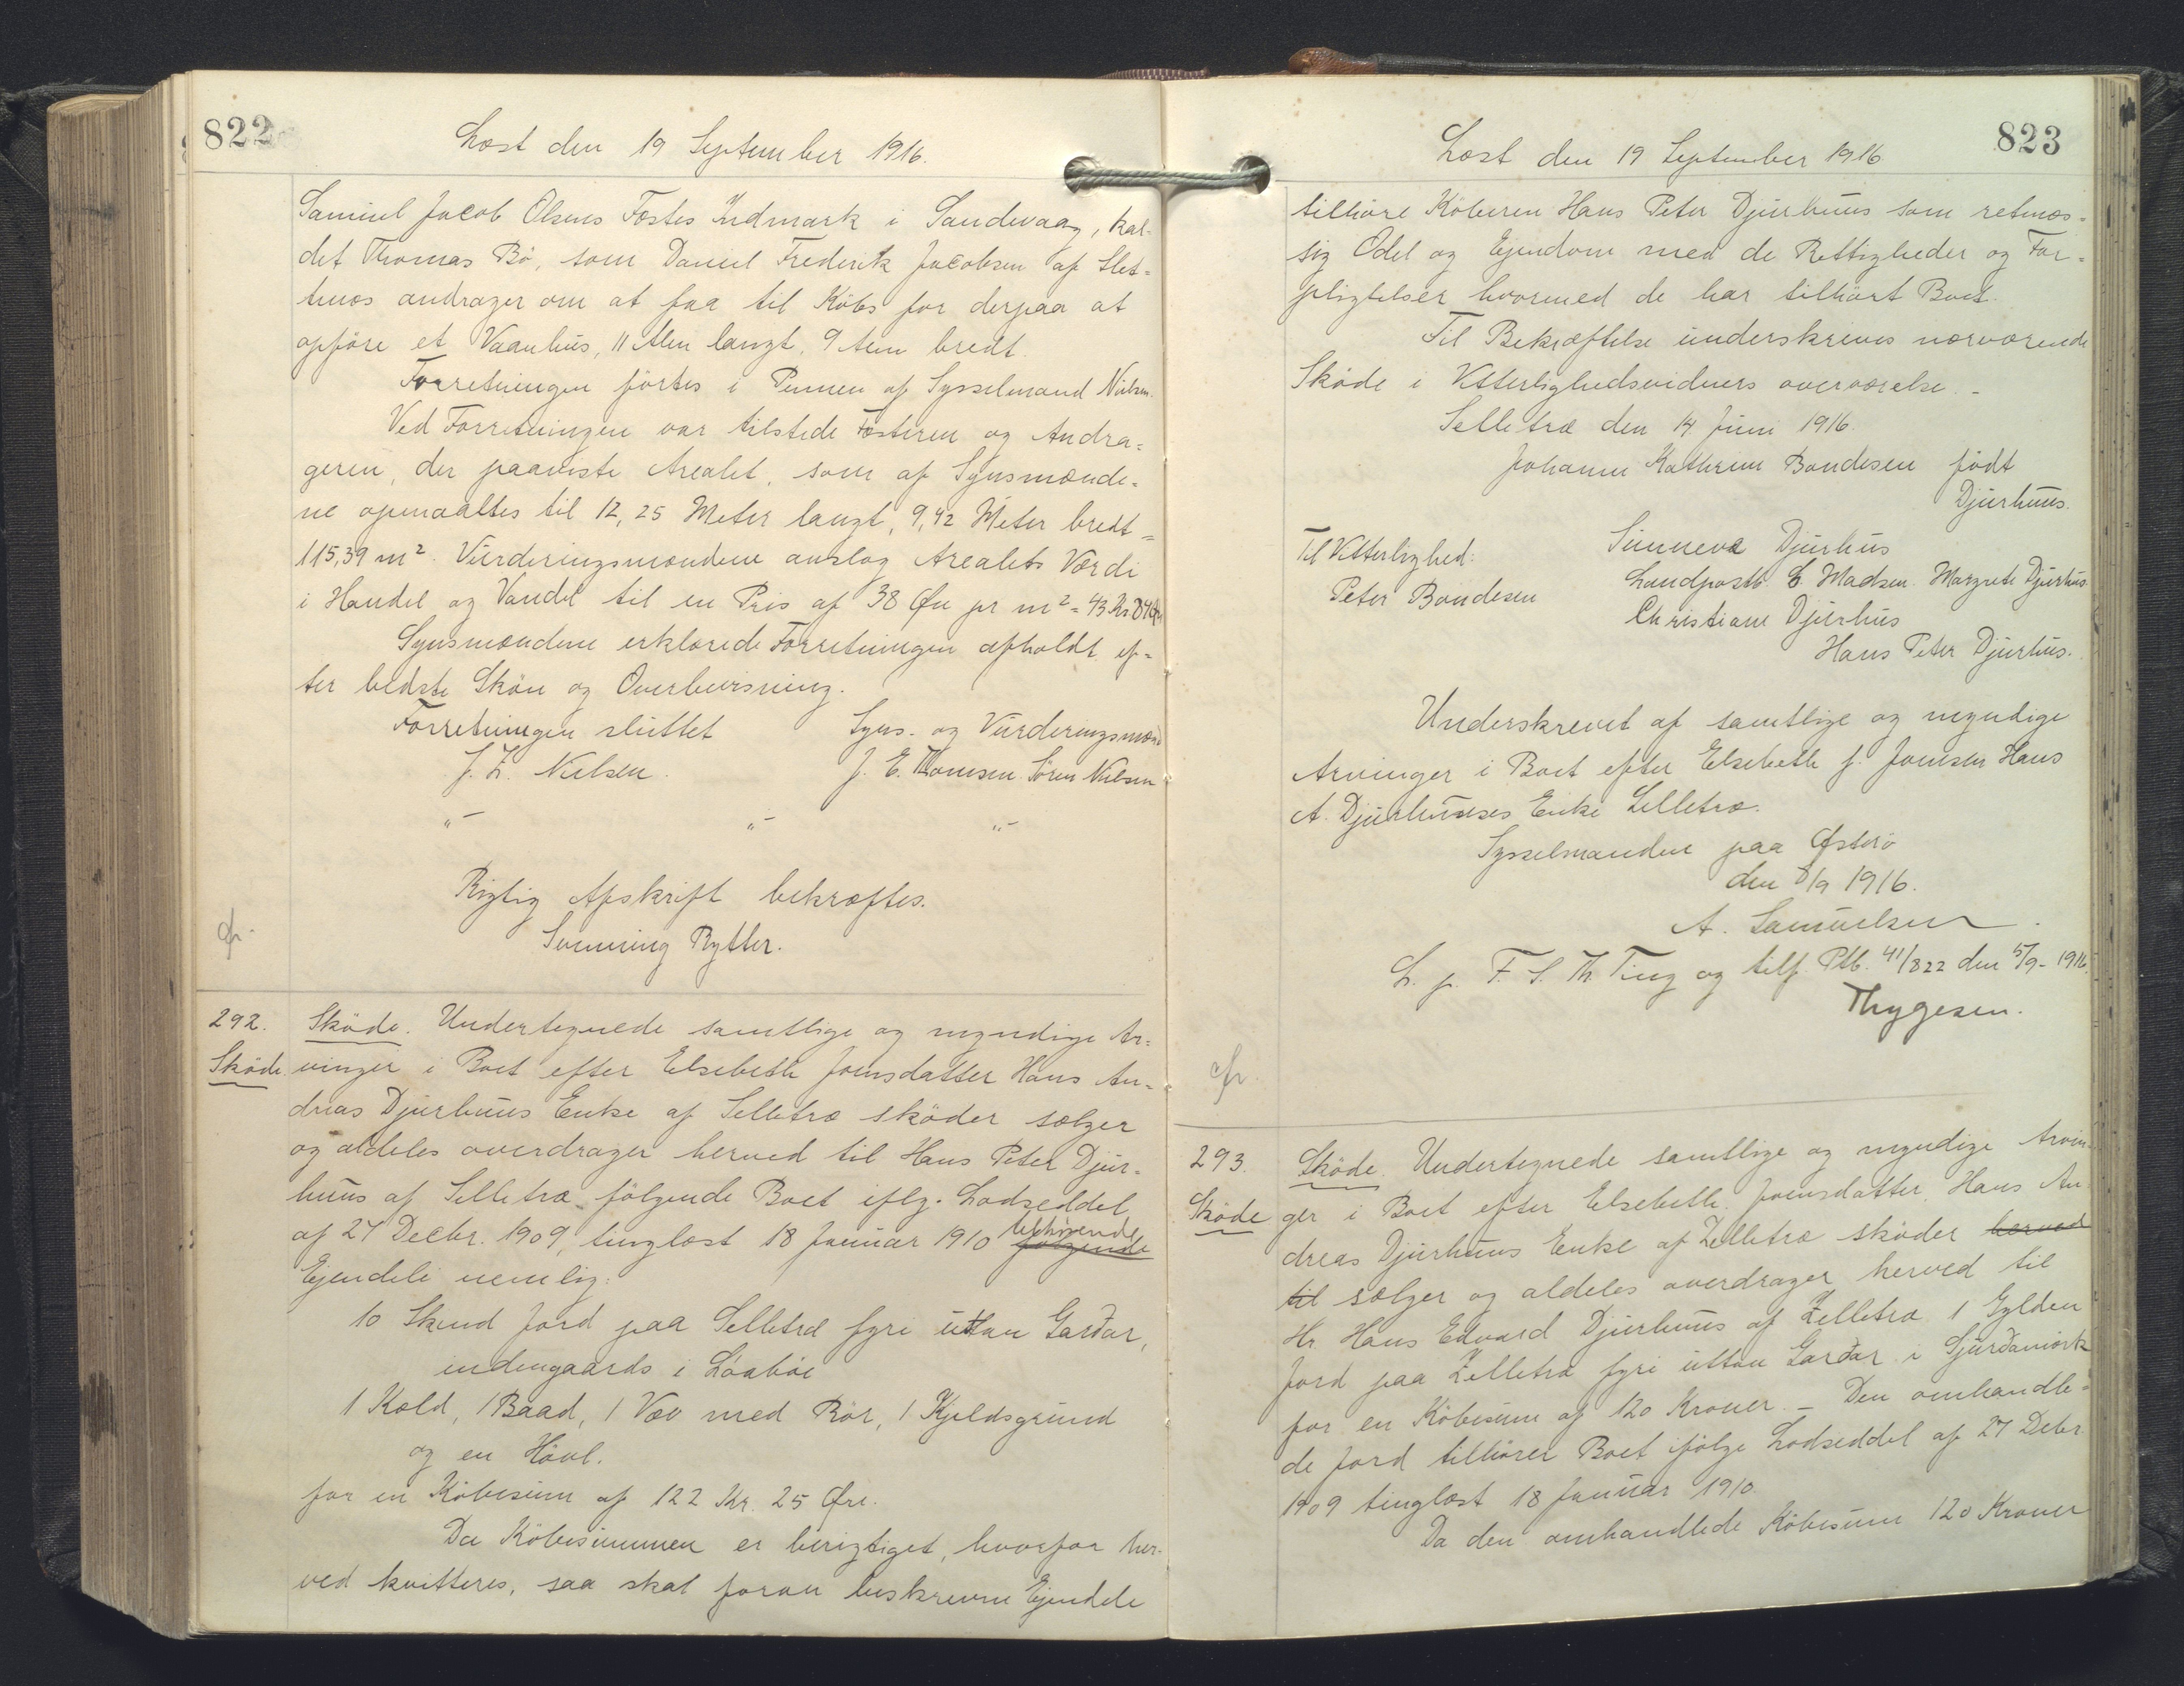 822
Læst den 19 September 1916.
Samuel Jacob Olsens Fæstes Indmark i Sandevaag, kal-
det Thomas Bø, som Daniel Frederik Jacobsen af Slet-
tnæs andrager om at faa til Købs for derpaa at
opføre et Vaanhus, 11 Alen langt, 9 Alen bredt.
Forretningen førtes i Pennen af Sysselmand Nielsen.
Ved Forretningen var tilstede Fæsteren og Andra-
geren, der paaviste Arealet, som af Synsmænde-
ne opmaaltes til 12,25 Meter langt, 9,42 Meter bredt =
115,39 m². Vurderingsmændene anslog Arealets Værdi
i Handel og Vandel til en Pris af 38 Øre pr m² = 43 Kr 84 Ør
Synsmændene erklærede Forretningen afholdt ef-
ter bedste Skøn og Overbevisning.
Forretningen sluttet Syns- og Vurderingsmænd
J. Z. Nielsen. J. E. Thomsen. Sören Nielsen
"- "- "-
Rigtig Afskrift bekræftes.
Svenning Rytter.
292. Sköde. Undertegnede samtlige og myndige Ar-
Sköde. vinger i Boet efter Elsebeth Joensdatter Hans An-
dreas Djurhuus Enke af Selletræ sköder sælger
og aldeles overdrager herved til Hans Peter Djur-
huus af Selletræ følgende Boet iflg. Lodseddel
af 27 Decbr. 1909, tinglæst 18 Januar 1910 tilhörende følgende
Ejendele nemlig:
10 Skind Jord paa Selletræ fyri uttan Garđar,
indengaards i Löabøi
1 Kold, 1 Baad, 1 Væv med Rör, 1 Kjeldsgrund
og en Hövl.
for en Købesum af 122 Kr. 25 Øre.
Da Købesummen er berigtiget, hvorfor her-
ved kvitteres, saa skal foran beskrevne Ejendele
823
Læst den 19 September 1916
tilhøre Køberen Hans Peter Djurhuus som retmæs-
sig Odel og Ejendom med de Rettigheder og For-
pligtelser hvormed de har tilhørt Boet.
Til Bekræftelse underskrives nærværende
Sköde i Vitterlighedsvidners overværelse. -
Selletræ den 14 Juni 1916.
Johanne Kathrine Bondesen født
Djurhuus.
Til Vitterlighed: Sunneva Djurhus
Peter Bondesen Landpostb. E. Madsen. Margrete Djurhus
Christiane Djurhus
Hans Peter Djurhus.
Underskrevet af samtlige og myndige
Arvinger i Boet efter Elsebeth f. Joensen Hans
A. Djurhuuses Enke Selletræ.
Sysselmanden paa Østerø
den 8/9 1916.
A. Samuelsen
L. p. F. S. Th. Ting og tilf. Ptb. 41/822 den 5/9 - 1916.
Thygesen.
293. Sköde. Undertegnede samtlige og myndige Arvin-
Sköde ger i Boet efter Elsebeth Joensdatter, Hans An-
dreas Djurhuus Enke af Zelletræ sköder herved
til sælger og aldeles overdrager herved til
Hr. Hans Edvard Djurhuus af Zelletræ 1 Gylden
Jord paa Zelletræ fyri uttan Garđar i Gjurđamörk
for en Købesum af 120 Kroner. - Den omhandle-
de Jord tilhører Boet ifølge Lodseddel af 27 Decbr
1909 tinglæst 18 Januar 1910.
Da den omhandlede Købesum 120 Kroner